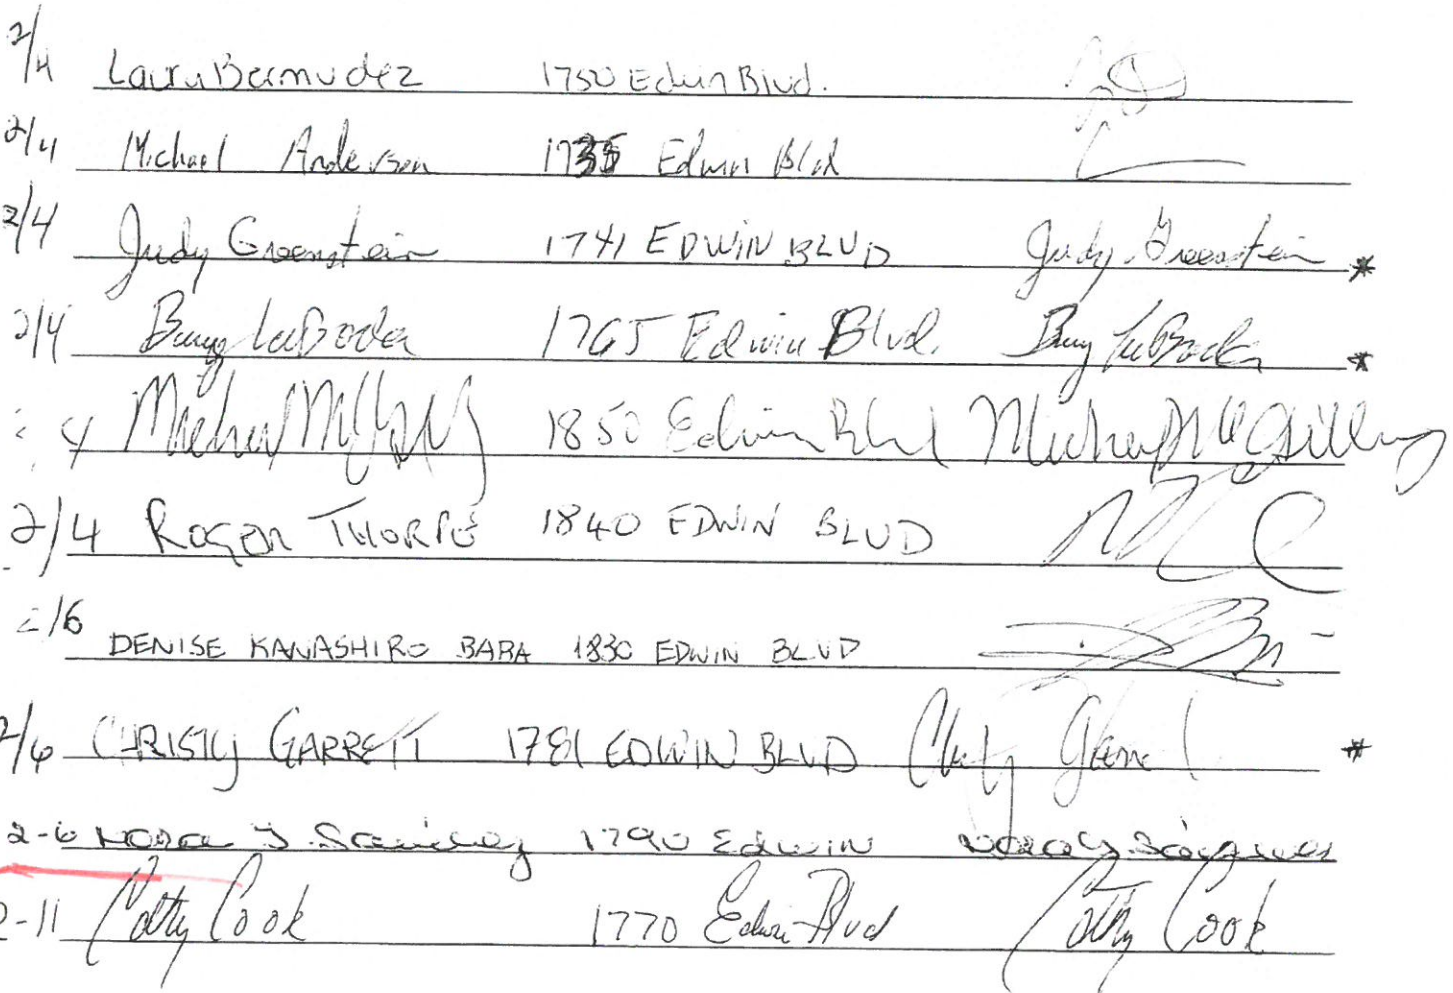 2/4 Laura Bermudez 1750 Edwin Blvd.
2/4 Michael Anderson 1735 Edwin Blvd
2/4 Judy Greenstein 1741 EDWIN BLVD Judy Greenstein *
2/4 LaBoda 1765 Edwin Blvd. LaBoda *
4 Michael 1850 Edwin Blvd Michael McGillivray
2/4 ROGER THORPE 1840 EDWIN BLVD
2/6 DENISE KANASHIRO BABA 1830 EDWIN BLVD
2/6 CHRISTY GARRETT 1781 EDWIN BLVD Christy Garrett *
2-6 Nora J. 1790 Edwin Nora J.
2-11 Cathy Cook 1770 Edwin Blvd Cathy Cook